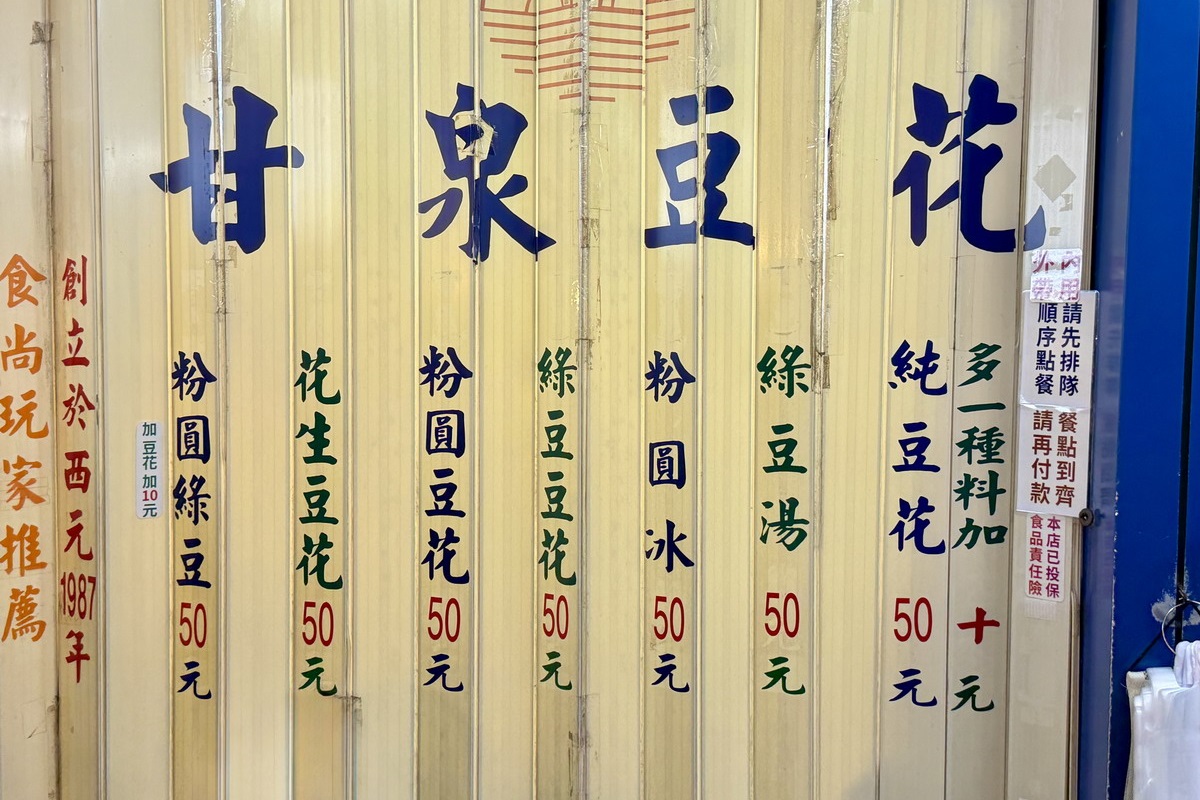 甘泉豆花
內用
外帶
請先排隊
順序點餐
餐點到齊
請再付款
本店已投保
食品責任險
多一種料加十元
純豆花50元
綠豆湯50元
粉圓冰50元
綠豆豆花50元
粉圓豆花50元
花生豆花50元
粉圓綠豆50元
加豆花加10元
創立於西元1987年
食尚玩家推薦